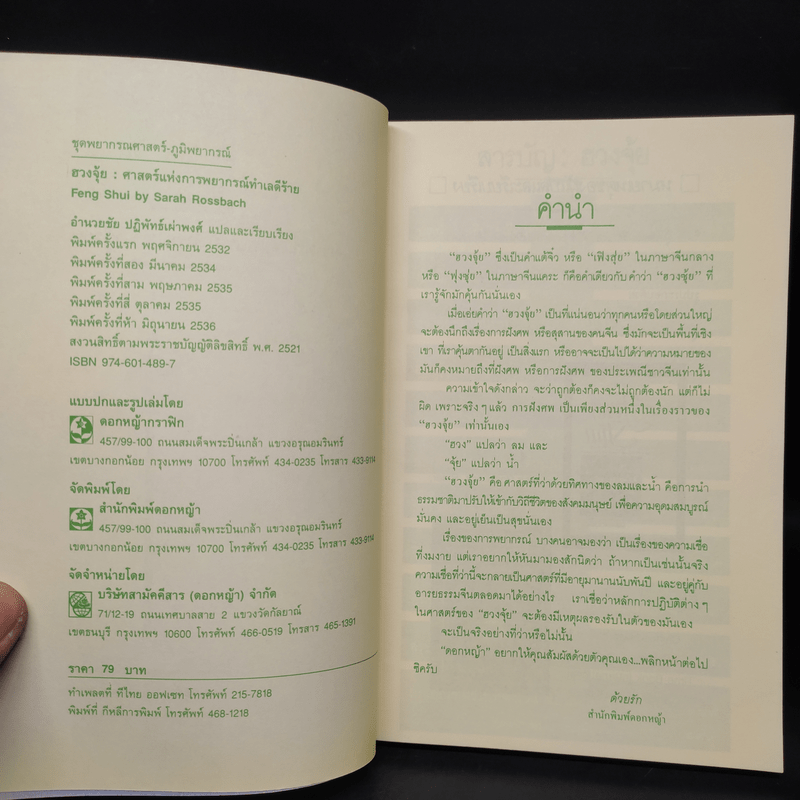 ชุดพยากรณศาสตร์-ภูมิพยากรณ์
ฮวงจุ้ย : ศาสตร์แห่งการพยากรณ์ทำเลดีร้าย
Feng Shui by Sarah Rossbach
อำนวยชัย ปฏิพัทธ์เผ่าพงศ์ แปลและเรียบเรียง
พิมพ์ครั้งแรก พฤศจิกายน 2532
พิมพ์ครั้งที่สอง มีนาคม 2534
พิมพ์ครั้งที่สาม พฤษภาคม 2535
พิมพ์ครั้งที่สี่ ตุลาคม 2535
พิมพ์ครั้งที่ห้า มิถุนายน 2536
สงวนสิทธิ์ตามพระราชบัญญัติลิขสิทธิ์ พ.ศ. 2521
ISBN 974-601-489-7
แบบปกและรูปเล่มโดย
ดอกหญ้ากราฟิก
457/99-100 ถนนสมเด็จพระปิ่นเกล้า แขวงอรุณอมรินทร์
เขตบางกอกน้อย กรุงเทพฯ 10700 โทรศัพท์ 434-0235 โทรสาร 433-9114
จัดพิมพ์โดย
สำนักพิมพ์ดอกหญ้า
457/99-100 ถนนสมเด็จพระปิ่นเกล้า แขวงอรุณอมรินทร์
เขตบางกอกน้อย กรุงเทพฯ 10700 โทรศัพท์ 434-0235 โทรสาร 433-9114
จัดจำหน่ายโดย
บริษัทสามัคคีสาร (ดอกหญ้า) จำกัด
71/12-19 ถนนเทศบาลสาย 2 แขวงวัดกัลยาณ์
เขตธนบุรี กรุงเทพฯ 10600 โทรศัพท์ 466-0519 โทรสาร 465-1391
ราคา 79 บาท
ทำเพลตที่ ทีไทย ออฟเซท โทรศัพท์ 215-7818
พิมพ์ที่ กิหลีการพิมพ์ โทรศัพท์ 468-1218
คำนำ
"ฮวงจุ้ย" ซึ่งเป็นคำแต้จิ๋ว หรือ "เฟิงสุ่ย" ในภาษาจีนกลาง
หรือ "ฟุงซุ่ย" ในภาษาจีนแคระ ก็คือคำเดียวกับ คำว่า "ฮวงซุ้ย" ที่
เรารู้จักมักคุ้นกันนั่นเอง
เมื่อเอ่ยคำว่า "ฮวงจุ้ย" เป็นที่แน่นอนว่าทุกคนหรือโดยส่วนใหญ่
จะต้องนึกถึงเรื่องการฝังศพ หรือสุสานของคนจีน ซึ่งมักจะเป็นพื้นที่เชิง
เขา ที่เราคุ้นตากันอยู่ เป็นสิ่งแรก หรืออาจจะเป็นไปได้ว่าความหมายของ
มันก็คงหมายถึงที่ฝังศพ หรือการฝังศพ ของประเพณีชาวจีนเท่านั้น
ความเข้าใจดังกล่าว จะว่าถูกต้องก็คงจะไม่ถูกต้องนัก แต่ก็ไม่
ผิด เพราะจริง ๆ แล้ว การฝังศพ เป็นเพียงส่วนหนึ่งในเรื่องราวของ
"ฮวงจุ้ย" เท่านั้นเอง
"ฮวง" แปลว่า ลม และ
"จุ้ย" แปลว่า น้ำ
"ฮวงจุ้ย" คือ ศาสตร์ที่ว่าด้วยทิศทางของลมและน้ำ คือการนำ
ธรรมชาติมาปรับให้เข้ากับวิถีชีวิตของสังคมมนุษย์ เพื่อความอุดมสมบูรณ์
มั่นคง และอยู่เย็นเป็นสุขนั่นเอง
เรื่องของการพยากรณ์ บางคนอาจมองว่า เป็นเรื่องของความเชื่อ
ที่งมงาย แต่เราอยากให้หันมามองสักนิดว่า ถ้าหากเป็นเช่นนั้นจริง
ความเชื่อที่ว่านี้จะกลายเป็นศาสตร์ที่มีอายุมานานนับพันปี และอยู่คู่กับ
อารยธรรมจีนตลอดมาได้อย่างไร เราเชื่อว่าหลักการปฏิบัติต่าง ๆ
ในศาสตร์ของ "ฮวงจุ้ย" จะต้องมีเหตุผลรองรับในตัวของมันเอง
จะเป็นจริงอย่างที่ว่าหรือไม่นั้น
"ดอกหญ้า" อยากให้คุณสัมผัสด้วยตัวคุณเอง...พลิกหน้าต่อไป
ซิครับ
ด้วยรัก
สำนักพิมพ์ดอกหญ้า